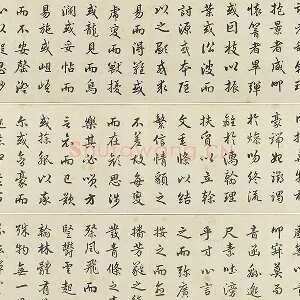 抱景者咸叩
懷響者畢彈
或因枝以振
葉或沿波而
討源或本隱
以之顯或求
易而得難或
虎變而獸擾
或龍見而鳥
瀾或妥帖而
易施或岨峿
而不安罄澄
筆端始躑躅
於燥吻終流
離於濡翰理
扶質以立幹
文垂條而結
繁信情貌之
不差故每變
而在顏思涉
樂其必笑方
言哀而已歎
或操觚以率
爾或含毫而
叩寂寞而
音函緜邈
尺素吐滂
乎寸心言
之而彌廣
按之而逾
播芳蕤之
發青條之
粲風飛而
豎鬱雲起
翰林體有
殊物無一